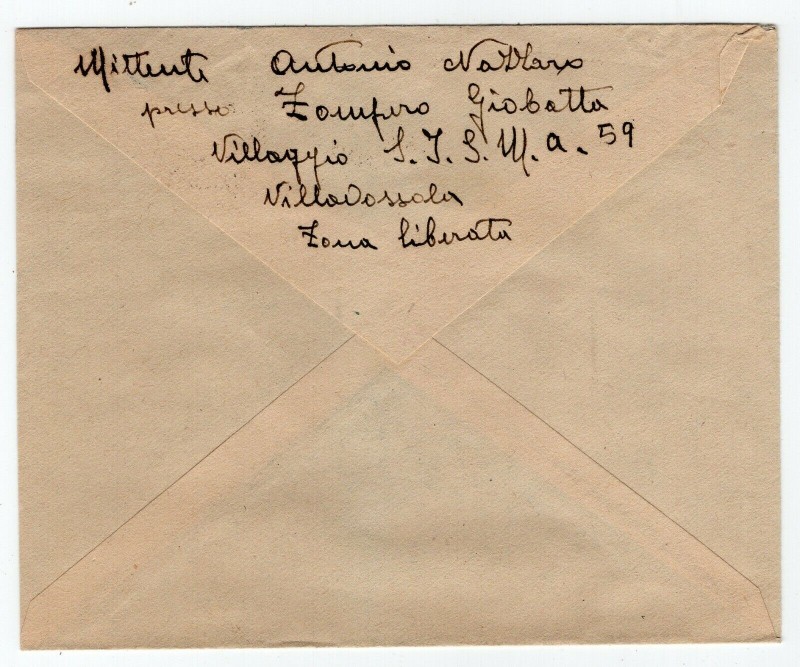 Mittente Antonio
presso Zampero Giobatta
Villaggio S.I.S.M.a. 59
Villadossola
Zona liberata